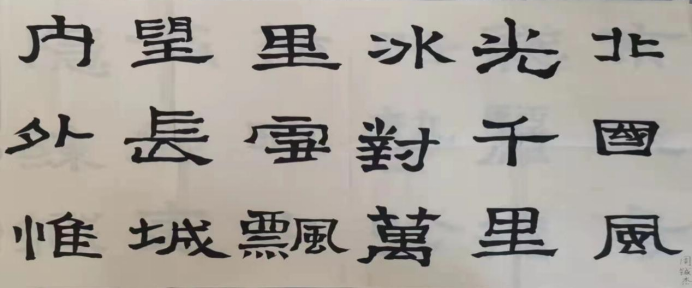 北國風
光千里
冰對萬
里雪飄
望長城
内外惟